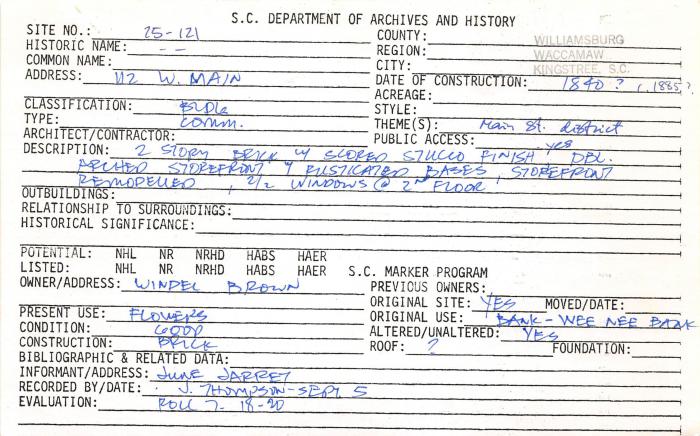 S.C. DEPARTMENT OF ARCHIVES AND HISTORY
SITE NO.: 25-121 COUNTY: WILLIAMSBURG
HISTORIC NAME: -- REGION: WACCAMAW
COMMON NAME: CITY: KINGSTREE, S.C.
ADDRESS: 112 W. MAIN DATE OF CONSTRUCTION: 1840? c. 1885?
ACREAGE:
CLASSIFICATION: BLDG STYLE:
TYPE: Comm. THEME(S): Main St. district
ARCHITECT/CONTRACTOR: PUBLIC ACCESS: yes
DESCRIPTION: 2 STORY BRICK W/ SCORED STUCCO FINISH, DBL.
ARCHED STOREFRONT W/ RUSTICATED BASES, STOREFRONT
REMODELLED, 2/2 WINDOWS @ 2nd FLOOR
OUTBUILDINGS:
RELATIONSHIP TO SURROUNDINGS:
HISTORICAL SIGNIFICANCE:
POTENTIAL: NHL NR NRHD HABS HAER
LISTED: NHL NR NRHD HABS HAER S.C. MARKER PROGRAM
OWNER/ADDRESS: WINDEL BROWN PREVIOUS OWNERS:
ORIGINAL SITE: YES MOVED/DATE:
PRESENT USE: FLOWERS ORIGINAL USE: BANK - WEE NEE BANK
CONDITION: GOOD ALTERED/UNALTERED: YES
CONSTRUCTION: BRICK ROOF: ? FOUNDATION:
BIBLIOGRAPHIC & RELATED DATA:
INFORMANT/ADDRESS: JUNE JARRET
RECORDED BY/DATE: J. THOMPSON - SEPT 5
EVALUATION: ROLL 7 - 18-20